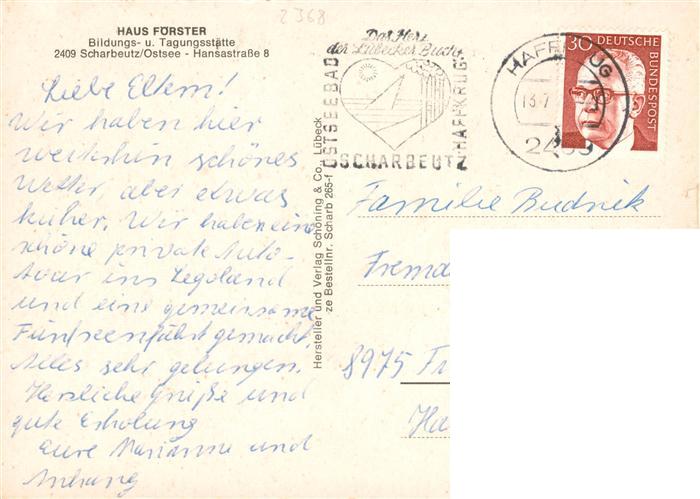 2368
HAUS FÖRSTER
Bildungs- u. Tagungsstätte
2409 Scharbeutz/Ostsee - Hansastraße 8
Liebe Eltern!
Wir haben hier
weiterhin schönes
Wetter, aber etwas
kühler. Wir haben eine
schöne private Auto-
tour ins Legoland
und eine gemeinsame
Fünfseenfahrt gemacht.
Alles sehr gelungen.
Herzliche Grüße und
gute Erholung
Eure Marianne und
Anhang
Hersteller und Verlag Schöning & Co., Lübeck
ze Bestellnr. Scharb 265-f
Das Herz
der Lübecker Bucht
OSTSEEBAD
SCHARBEUTZ
HAFFKRUG
HAFFKRUG
13.7
2409
30 DEUTSCHE
BUNDESPOST
Familie Budnik
8975